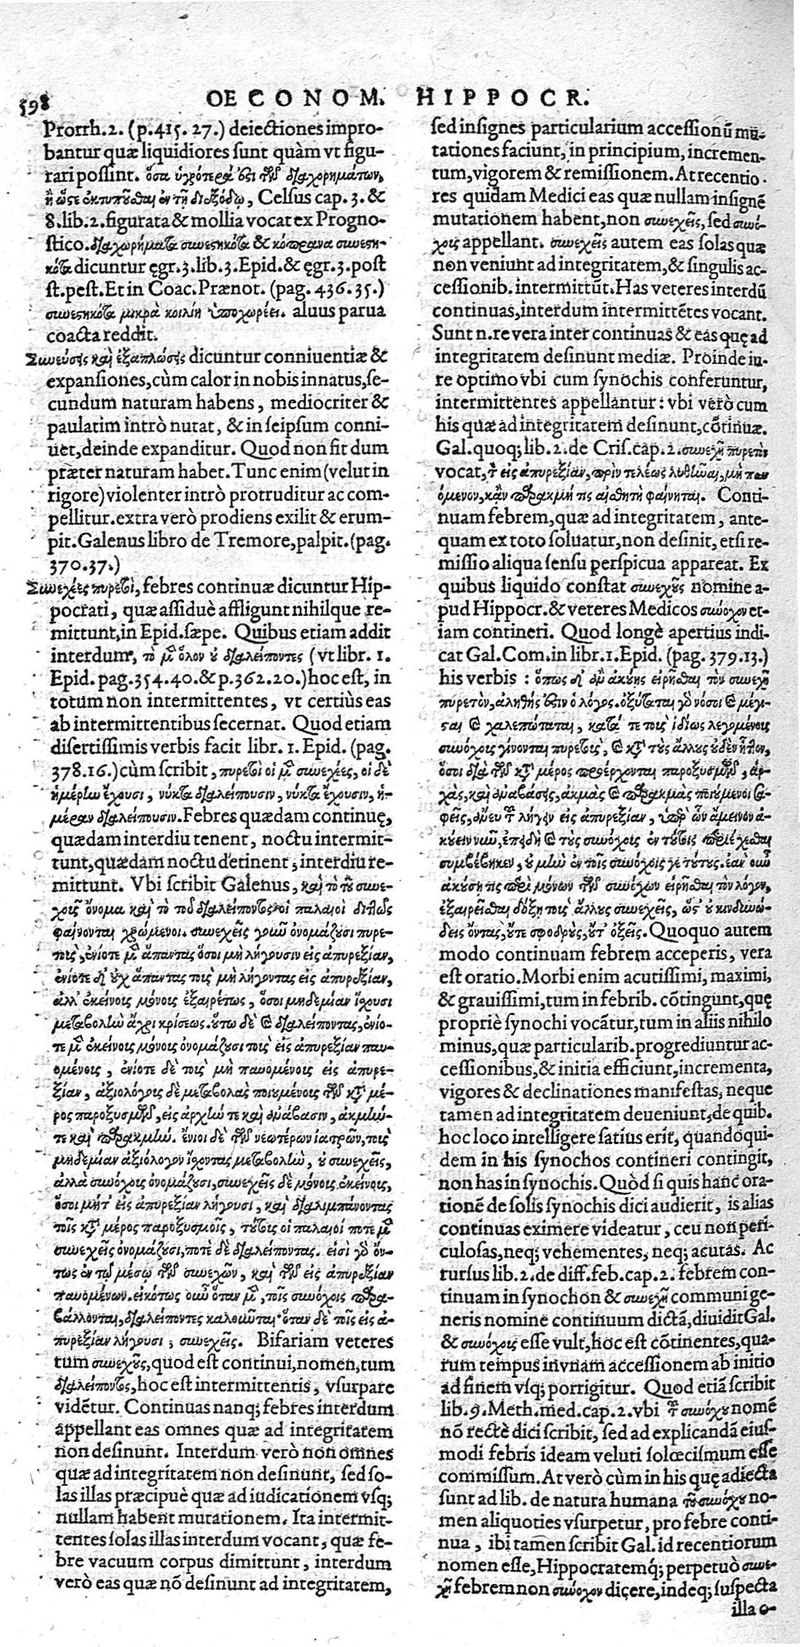 598 OECONOM. HIPPOCR.
Prorrh.2. (p.415. 27.) deiectiones impro-
bantur quæ liquidiores sunt quàm vt figu-
rari possint. ὅσα ὑγρότερά ἐστι τῶν διαχωρημάτων,
ἢ ὥστε ἐκτυποῦσθαι ἐν τῇ διεξόδῳ, Celsus cap. 3. &
8. lib. 2. figurata & mollia vocat ex Progno-
stico. διαχωρήματα συνεστηκότα & κόπρανα συνεστη-
κότα dicuntur ęgr. 3. lib. 3. Epid. & ęgr. 3. post
st. pest. Et in Coac. Prænot. (pag. 436. 35.)
συνεστηκότα μικρὰ κοιλίη ὑποχωρέει. aluus parua
coacta reddit.
Συνεύσις καὶ ἐξαπλώσις dicuntur conniuentiæ &
expansiones, cùm calor in nobis innatus, se-
cundum naturam habens, mediocriter &
paulatim intrò nutat, & in seipsum conni-
uet, deinde expanditur. Quod non fit dum
præter naturam habet. Tunc enim (velut in
rigore) violenter intrò protruditur ac com-
pellitur. extra verò prodiens exilit & erum-
pit. Galenus libro de Tremore, palpit. (pag.
370. 37.)
Συνεχέες πυρετοὶ, febres continuæ dicuntur Hip-
pocrati, quæ assiduè affligunt nihilque re-
mittunt, in Epid. sæpe. Quibus etiam addit
interdum, τὸ μὲν ὅλον οὐ διαλείποντες (vt libr. 1.
Epid. pag. 354. 40. & p. 362. 20.) hoc est, in
totum non intermittentes, vt certiùs eas
ab intermittentibus secernat. Quod etiam
disertissimis verbis facit libr. 1. Epid. (pag.
378. 16.) cùm scribit, πυρετοὶ οἱ μὲν συνεχέες, οἱ δὲ
ἡμέρην ἔχουσι, νύκτα διαλείπουσιν, νύκτα ἔχουσιν, ἡ-
μέρην διαλείπουσιν. Febres quædam continuę,
quædam interdiu tenent, noctu intermit-
tunt, quædam noctu detinent, interdiu re-
mittunt. Vbi scribit Galenus, καὶ τὸ τοῦ συνε-
χοῦς ὄνομα καὶ τὸ τοῦ διαλείποντος οἱ παλαιοὶ διττῶς
φαίνονται χρώμενοι. συνεχεῖς γοῦν ὀνομάζουσι πυρε-
τοὺς, ἐνίοτε μὲν ἅπαντας ὅσοι μὴ λήγουσιν εἰς ἀπυρεξίαν,
ἐνίοτε δὲ οὐχ ἅπαντας τοὺς μὴ λήγοντας εἰς ἀπυρεξίαν,
ἀλλ' ἐκείνους μόνους ἐξαιρέτως, ὅσοι μηδεμίαν ἴσχουσι
μεταβολὴν ἄχρι κρίσεως. οὕτω δὲ & διαλείποντας, ἐνίο-
τε μὲν ἐκείνους μόνους ὀνομάζουσι τοὺς εἰς ἀπυρεξίαν παυ-
ομένους, ἐνίοτε δὲ τοὺς μὴ παυομένους εἰς ἀπυρε-
ξίαν, ἀξιολόγους δὲ μεταβολὰς ποιουμένους τῶν κατὰ μέ-
ρος παροξυσμῶν, εἰς ἀρχήν τε καὶ ἀνάβασιν, ἀκμήν
τε καὶ παρακμήν. ἔνιοι δὲ τῶν νεωτέρων ἰατρῶν, τοὺς
μηδεμίαν ἀξιόλογον ἴσχοντας μεταβολὴν, οὐ συνεχεῖς,
ἀλλὰ συνόχους ὀνομάζουσι, συνεχεῖς δὲ μόνους ἐκείνους,
ὅσοι μήτ' εἰς ἀπυρεξίαν λήγουσι, καὶ διαλιμπάνοντας
τοῖς κατὰ μέρος παροξυσμοῖς, τούτους οἱ παλαιοί ποτε μὲν
συνεχεῖς ὀνομάζουσι, ποτὲ δὲ διαλείποντας. εἰσὶ γὰρ ὄν-
τως ἐν τῷ μέσῳ τῶν συνεχῶν, καὶ τῶν εἰς ἀπυρεξίαν
παυομένων. εἰκότως οὖν ὅταν μὲν, τοῖς συνόχοις παρα-
βάλλονται, διαλείποντες καλοῦνται· ὅταν δὲ τοῖς εἰς ἀ-
πυρεξίαν λήγουσι, συνεχεῖς. Bifariam veteres
tum συνεχοῦς, quod est continui, nomen, tum
διαλείποντος, hoc est intermittentis, vsurpare
vidētur. Continuas nanq; febres interdum
appellant eas omnes quæ ad integritatem
non desinunt. Interdum verò non omnes
quæ ad integritatem non desinunt, sed so-
las illas præcipuè quæ ad iudicationem vsq;
nullam habent mutationem. Ita intermit-
tentes solas illas interdum vocant, quæ fe-
bre vacuum corpus dimittunt, interdum
verò eas quæ nō desinunt ad integritatem,
sed insignes particularium accessionū mu-
tationes faciunt, in principium, incremen-
tum, vigorem & remissionem. At recentio-
res quidam Medici eas quæ nullam insignē
mutationem habent, non συνεχεῖς, sed συνό-
χους appellant. συνεχεῖς autem eas solas quæ
non veniunt ad integritatem, & singulis ac-
cessionib. intermittūt. Has veteres interdū
continuas, interdum intermittētes vocant.
Sunt n. re vera inter continuas & eas quę ad
integritatem desinunt mediæ. Proinde iu-
re optimo vbi cum synochis conferuntur,
intermittentes appellantur: vbi verò cum
his quæ ad integritatem desinunt, cōtinuæ.
Gal. quoq; lib. 2. de Cris. cap. 2. συνεχῆ πυρετὸν
vocat, τὸν εἰς ἀπυρεξίαν, πρὶν τελέως λυθῆναι, μὴ παυ-
όμενον, κἂν παρακμή τις αἰσθητὴ φαίνηται. Conti-
nuam febrem, quæ ad integritatem, ante-
quam ex toto soluatur, non desinit, etsi re-
missio aliqua sensu perspicua appareat. Ex
quibus liquido constat συνεχοῦς nomine a-
pud Hippocr. & veteres Medicos σύνοχον et-
iam contineri. Quod longè apertius indi-
cat Gal. Com. in libr. 1. Epid. (pag. 379. 13.)
his verbis: ὅπως δ' ἂν ἀκούῃς εἰρῆσθαι τὸν συνεχῆ
πυρετὸν, ἀληθής ἐστιν ὁ λόγος. ὀξύταται γὰρ νόσοι & μέγι-
σται & χαλεπώταται, κατά τε τοὺς ἰδίως λεγομένους
συνόχους γίνονται πυρετοὺς, & κατὰ τοὺς ἄλλους οὐδὲν ἧττον,
ὅσοι διὰ τῶν κατὰ μέρος προέρχονται παροξυσμῶν, ἀρ-
χὰς, καὶ ἀναβάσεις, ἀκμὰς & παρακμὰς ποιούμενοι σα-
φεῖς, ἄνευ τοῦ λήγειν εἰς ἀπυρεξίαν, ὑπὲρ ὧν ἄμεινον ἀ-
κούειν νῦν, ἐπειδὴ & τοὺς συνόχους ἐν τούτοις περιέχεσθαι
συμβέβηκεν, οὐ μὴν ἐν τοῖς συνόχοις γε τούτους. ἐὰν οὖν
ἀκούσῃ τις περὶ μόνων τῶν συνόχων εἰρῆσθαι τὸν λόγον,
ἐξαιρεῖσθαι δόξῃ τοὺς ἄλλους συνεχεῖς, ὡς οὐ κινδυνώ-
δεις ὄντας, οὔτε σφοδροὺς, οὔτ' ὀξεῖς. Quoquo autem
modo continuam febrem acceperis, vera
est oratio. Morbi enim acutissimi, maximi,
& grauissimi, tum in febrib. cōtingunt, quę
propriè synochi vocātur, tum in aliis nihilo
minus, quæ particularib. progrediuntur ac-
cessionibus, & initia efficiunt, incrementa,
vigores & declinationes manifestas, neque
tamen ad integritatem deueniunt, de quib.
hoc loco intelligere satius erit, quandoqui-
dem in his synochos contineri contingit,
non has in synochis. Quòd si quis hanc ora-
tionē de solis synochis dici audierit, is alias
continuas eximere videatur, ceu non peri-
culosas, neq; vehementes, neq; acutas. Ac
rursus lib. 2. de diff. feb. cap. 2. febrem con-
tinuam in synochon & συνεχῆ communi ge-
neris nomine continuum dictā, diuidit Gal.
& συνόχους esse vult, hoc est cōtinentes, qua-
rum tempus in vnam accessionem ab initio
ad finem vsq; porrigitur. Quod etiā scribit
lib. 9. Meth. med. cap. 2. vbi τοῦ συνόχου nomē
nō rectè dici scribit, sed ad explicandā eius-
modi febris ideam veluti solœcismum esse
commissum. At verò cùm in his quę adiecta
sunt ad lib. de natura humana τοῦ συνόχου no-
men aliquoties vsurpetur, pro febre conti-
nua, ibi tamen scribit Gal. id recentiorum
nomen esse, Hippocratemq; perpetuò συνε-
χῆ febrem non σύνοχον dicere, indeq; suspecta
illa o-